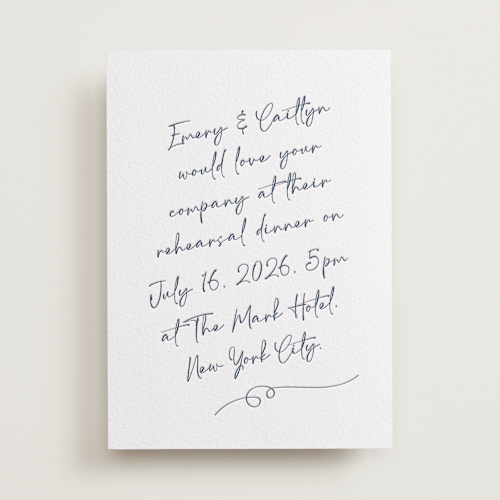 Emery & Caitlyn
would love your
company at their
rehearsal dinner on
July 16, 2026, 5pm
at The Mark Hotel,
New York City.